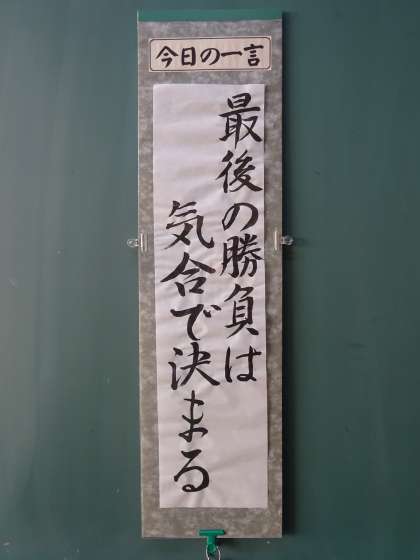 今日の一言
最後の勝負は
気合で決まる